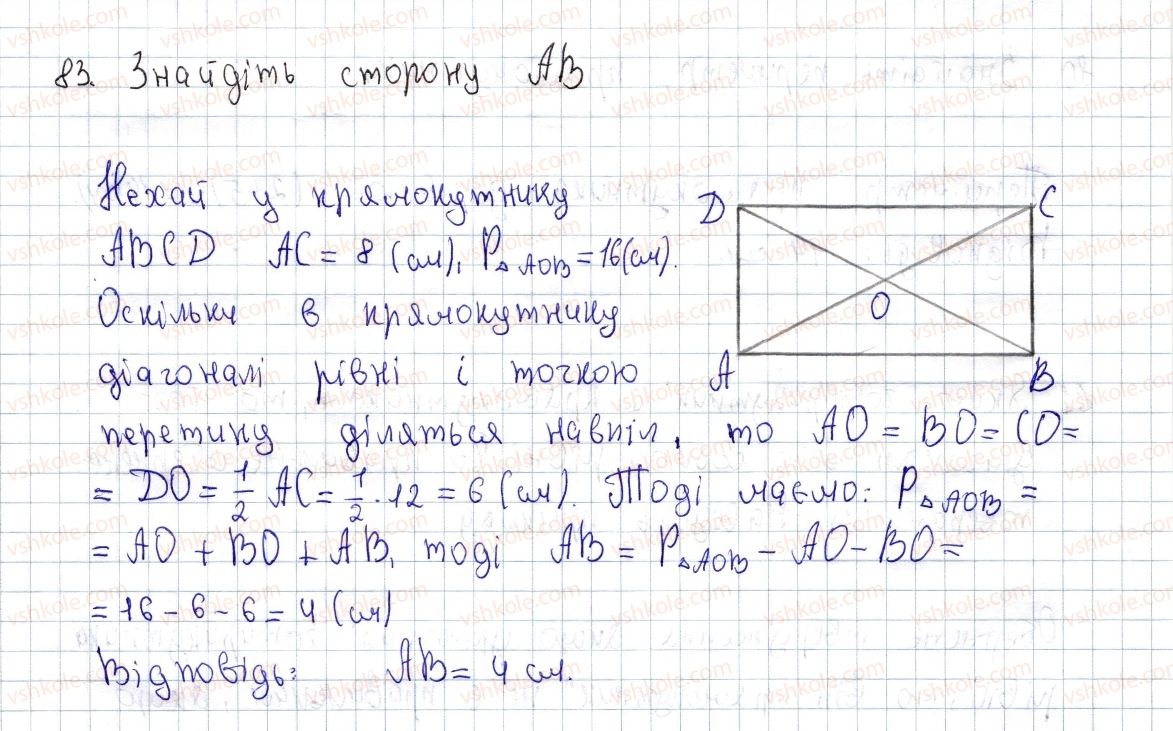 83. Знайдіть сторону AB
Нехай у прямокутнику
ABCD AC = 8 (см), P△AOB = 16(см).
Оскільки в прямокутнику
діагоналі рівні і точкою
перетину діляться навпіл, то AO = BO = CO =
= DO = 1/2 AC = 1/2 · 12 = 6 (см). Тоді маємо: P△AOB =
= AO + BO + AB, тоді AB = P△AOB - AO - BO =
= 16 - 6 - 6 = 4 (см)
Відповідь: AB = 4 см.
D
C
O
A
B
vshkole.com